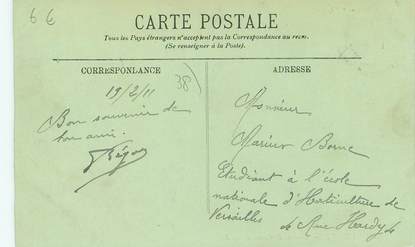 6 €
CARTE POSTALE
Tous les Pays étrangers n'acceptent pas la Correspondance au recto.
(Se renseigner à la Poste).
CORRESPONDANCE
19/2/11
38
Bon souvenir de
ton ami.
ADRESSE
Monsieur
Marius Borne
Etudiant à l'école
nationale d'Horticulture de
Versailles
4 Rue Hardy 4